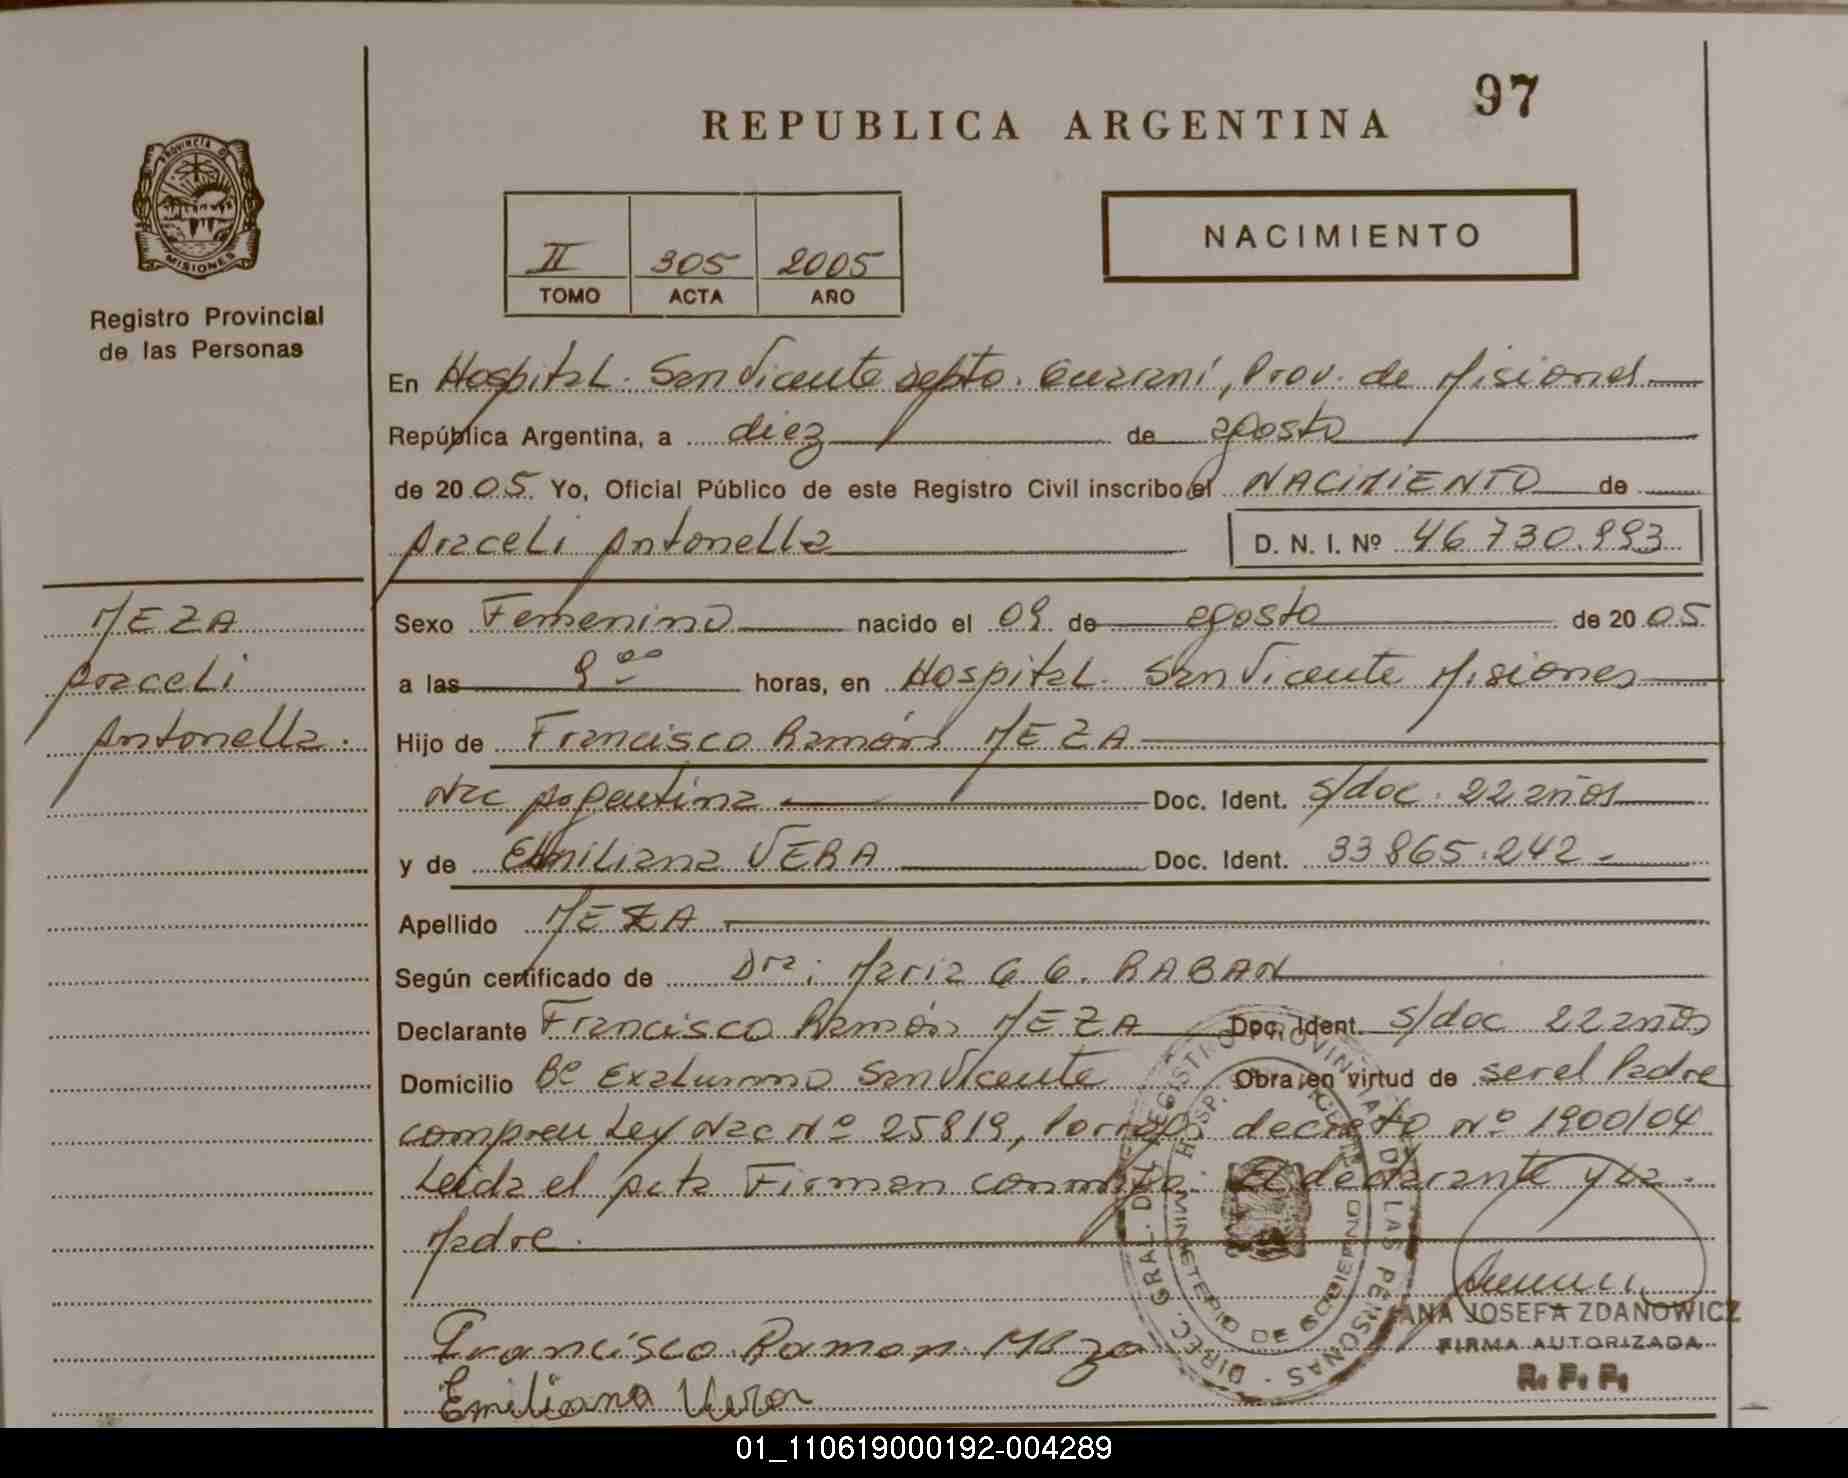 97
REPUBLICA ARGENTINA
PROVINCIA DE
MISIONES
Registro Provincial
de las Personas
II 305 2005
TOMO ACTA AÑO
NACIMIENTO
En Hospital. San Vicente depto. Guaraní, Prov. de Misiones
República Argentina, a diez de agosto
de 2005. Yo, Oficial Público de este Registro Civil inscribo el NACIMIENTO de
Araceli Antonella
D. N. I. Nº 46730.993
MEZA
Araceli
Antonella.
Sexo Femenino nacido el 09 de agosto de 2005.
a las 9 00 horas, en Hospital. San Vicente Misiones
Hijo de Francisco Ramón MEZA
Nac Argentina Doc. Ident. s/doc. 22 años
y de Emiliana VERA Doc. Ident. 33865.242.-
Apellido MEZA
Según certificado de Dra: Maria G G. RABAN
Declarante Francisco Ramón MEZA Doc. Ident. s/doc 22 años
Domicilio Bº San Vicente Obra en virtud de ser el Padre
Ley Nac Nº 25819, decreto Nº 1900/04
Leida el Acta Firman conmigo. El declarante y la.
Madre.
DIREC. GRAL. DE REGISTRO PROVINCIAL DE LAS PERSONAS
MINISTERIO DE GOBIERNO
Francisco Ramon Meza
Emiliana Vera
ANA JOSEFA ZDANOWICZ
FIRMA AUTORIZADA
R. P. P.
01_110619000192-004289